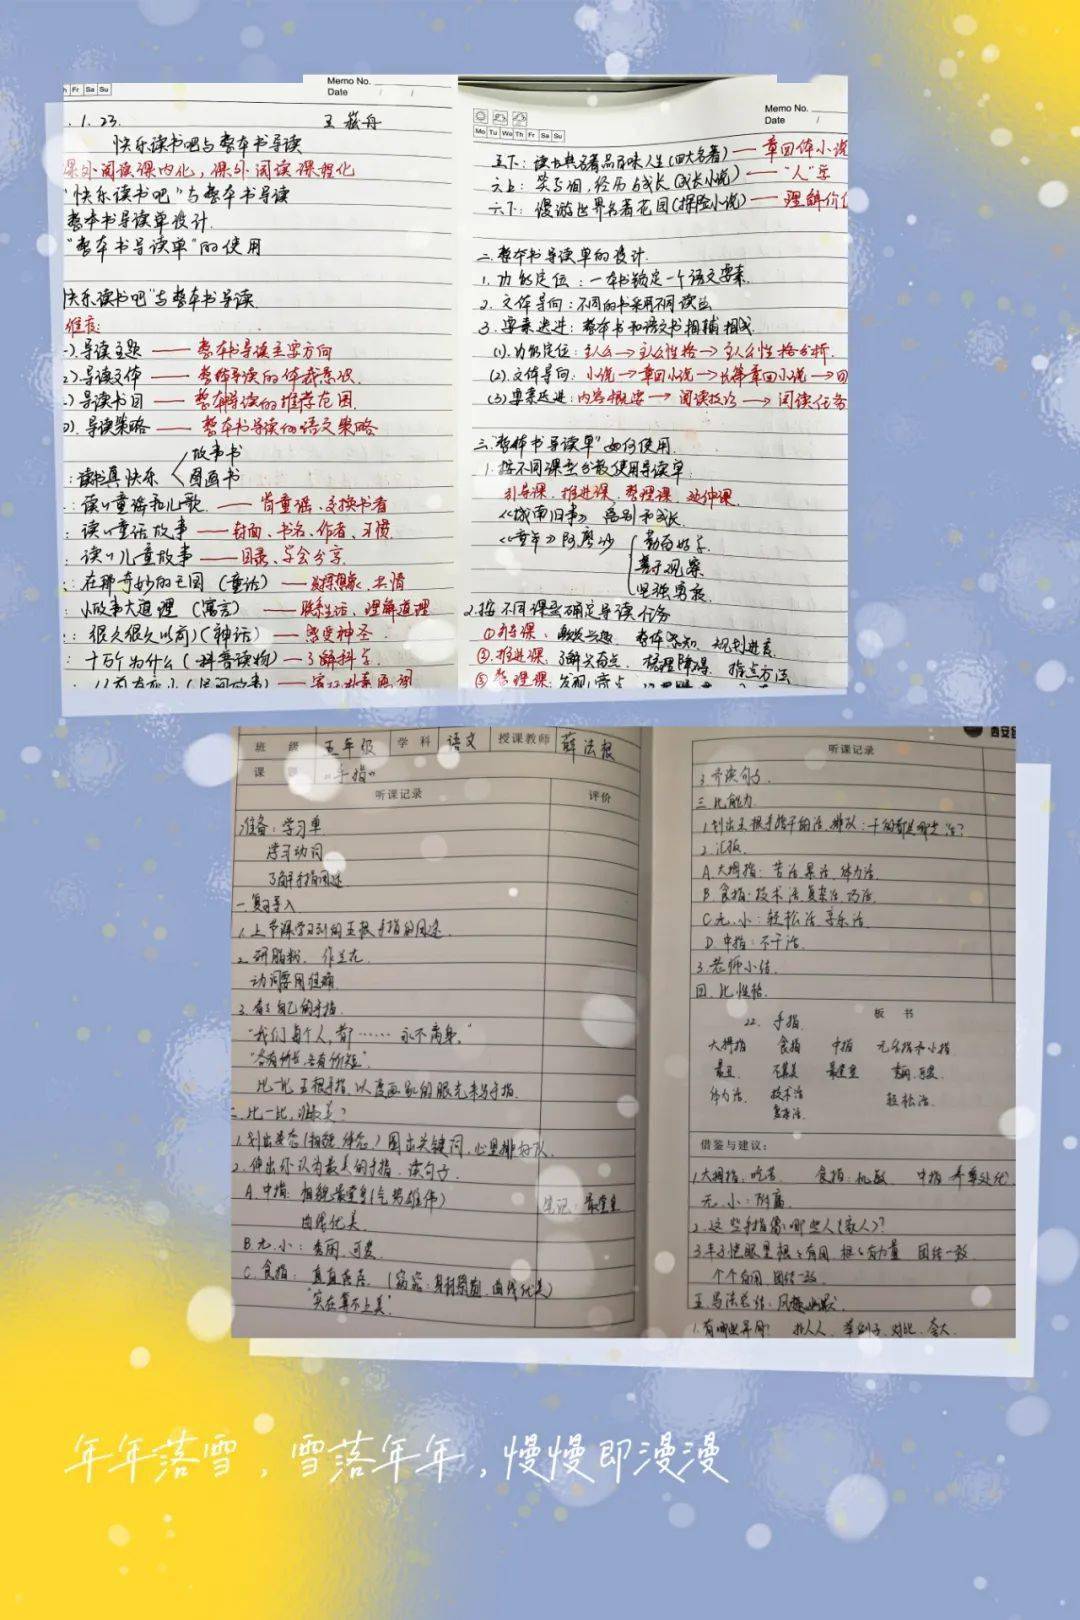 Fr Sa Su
Memo No.
Date / /
.1.23.
快乐读书吧与整本书导读
课外阅读课内化，课外阅读课程化
"快乐读书吧"与整本书导读
整本书导读单设计.
"整本书导读单"的使用
快乐读书吧"与整本书导读
维度:
).导读主题——整本书导读主要方向
2).导读文体——整本书导读的体裁意识.
).导读书目——整本书导读的推荐范围.
).导读策略——整本书导读的语文策略
故事书
:读书真快乐
图画书
:读读童谣和儿歌——背童谣、交换书看
:读读童话故事——封面、书名、作者、习惯
:读读儿童故事——目录、学会分享.
:在那奇妙的王国(童话)——发挥想象、共情
小故事大道理(寓言)——联系生活、理解道理
:很久很久以前)(神话)——感受神圣.
:十万个为什么(科普读物)——了解科学.
Memo No.
Date /
Mo Tu We Th Fr Sa Su
五下:读古典名著品百味人生(四大名著)——章回体小说
六上:笑与泪,经历与成长(成长小说)——"人"字
六下:漫游世界名著花园(探险小说)——理解价值
二.整本书导读单的设计.
1.功能定位:一本书锁定一个语文要素.
2.文体导向:不同的书采用不同读法
3.要素递进:整本书和语文书相辅相成
(1).功能定位:主人公→主人公性格→主人公性格分析.
(2).文体导向:小说→章回小说→长篇章回小说→回
(3)要素递进:内容概要→阅读技巧→阅读任务
三."整本书导读单"如何使用.
1.按不同课型分散使用导读单.
引导课.推进课.整理课.延伸课.
《城南旧事》离别和成长.
《童年》阿廖沙
勤奋好学.
善于观察
坚强勇敢.
2.按不同课型确定导读任务
①引导课.激发兴趣.整体感知.规划进度.
②.推进课.了解兴奋点.梳理障碍.指点方法
③整理课.发现亮点
班 级 五年级 学 科 语文 授课教师 薛法根
课 题 "手指"
听课记录 评价
准备:学习单
学习动词
了解手指用途
一.复习导入
1.上节课学习到的五根手指的用途.
2.研脂粉.作兰花.
动词要用准确.
3.看看自己的手指.
"我们每个人,都……永不离身."
"各有所长,各有所短".
比一比五根手指,以漫画家的眼光来写手指.
二.比一比,谁最美?
1.划出姿态(相貌,体态)圈出关键词,心里排好队.
2.伸出你认为最美的手指.读句子.
A.中指:相貌最堂皇(气势雄伟)
曲线优美.
笔记:最堂皇
B.无.小:秀丽.可爱.
C.食指:直直落落.(窈窕:身材苗条.曲线优美)
"实在算不上美".
听课记录
3.齐读句子.
三.比能力.
1.划出五根手指干的活.排队:干的都是哪些活?
2.汇报
A.大拇指:苦活.累活.体力活.
B.食指:技术活.复杂活.巧活.
C.无.小:轻松活.享乐活.
D.中指:不干活.
3.老师小结.
四.比性格.
板 书
22.手指.
大拇指 食指 中指 无名指和小指
最丑. 不算美 最堂皇 秀丽.可爱.
体力活. 技术活 轻松活.
复杂活.
借鉴与建议:
1.大拇指:吃苦. 食指:机敏 中指:养尊处优
无.小:附庸.
2.这些手指像哪些人(家人)?
3.丰子恺眼里根根有用.根根有力量 团结一致
个个有用.团结一致.
五.写法总结:风趣幽默.
1.有哪些异同? 拟人.举例子.对比.夸大.
年年落雪，雪落年年，慢慢即漫漫